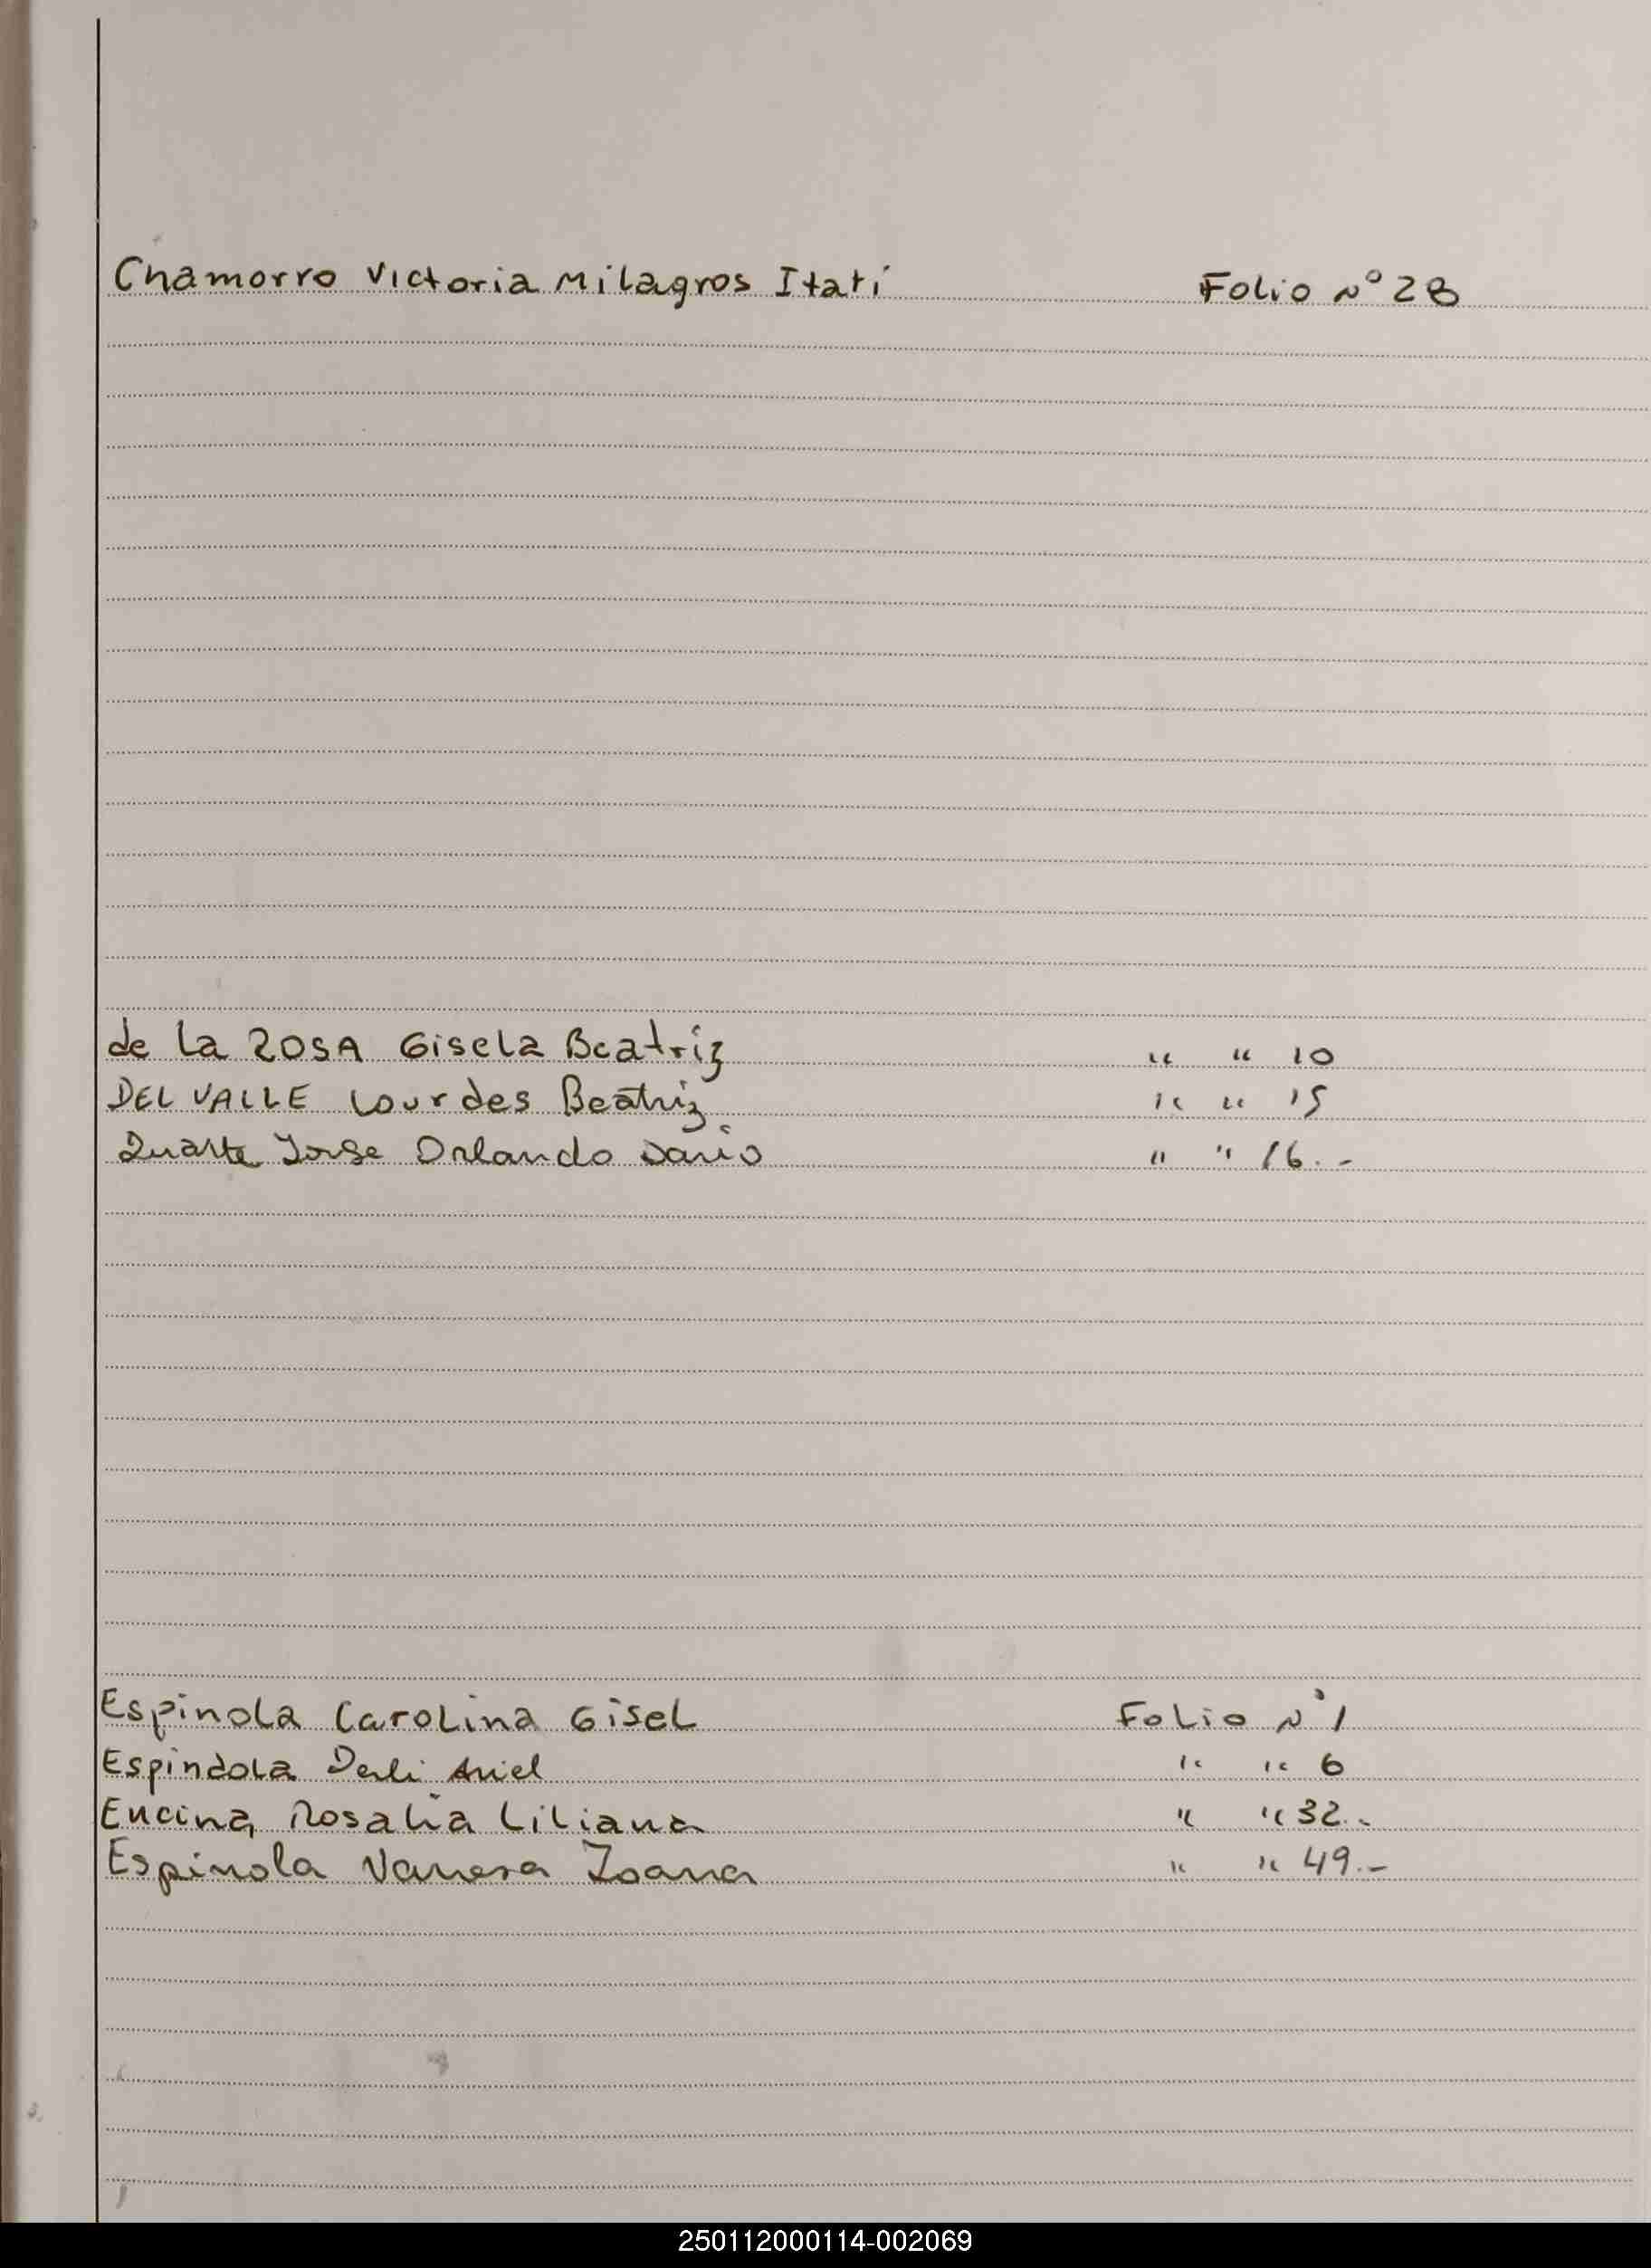 Chamorro Victoria Milagros Itatí Folio N° 28
de la ROSA Gisela Beatriz " " 10
DEL VALLE Lourdes Beatriz " " 15
Duarte Jorge Orlando Dario " " 16.-
Espinola Carolina Gisel Folio N° 1
Espindola Derli Ariel " " 6
Encina, Rosalia Liliana " " 32.-
Espinola Vanesa Joana " " 49.-
250112000114-002069